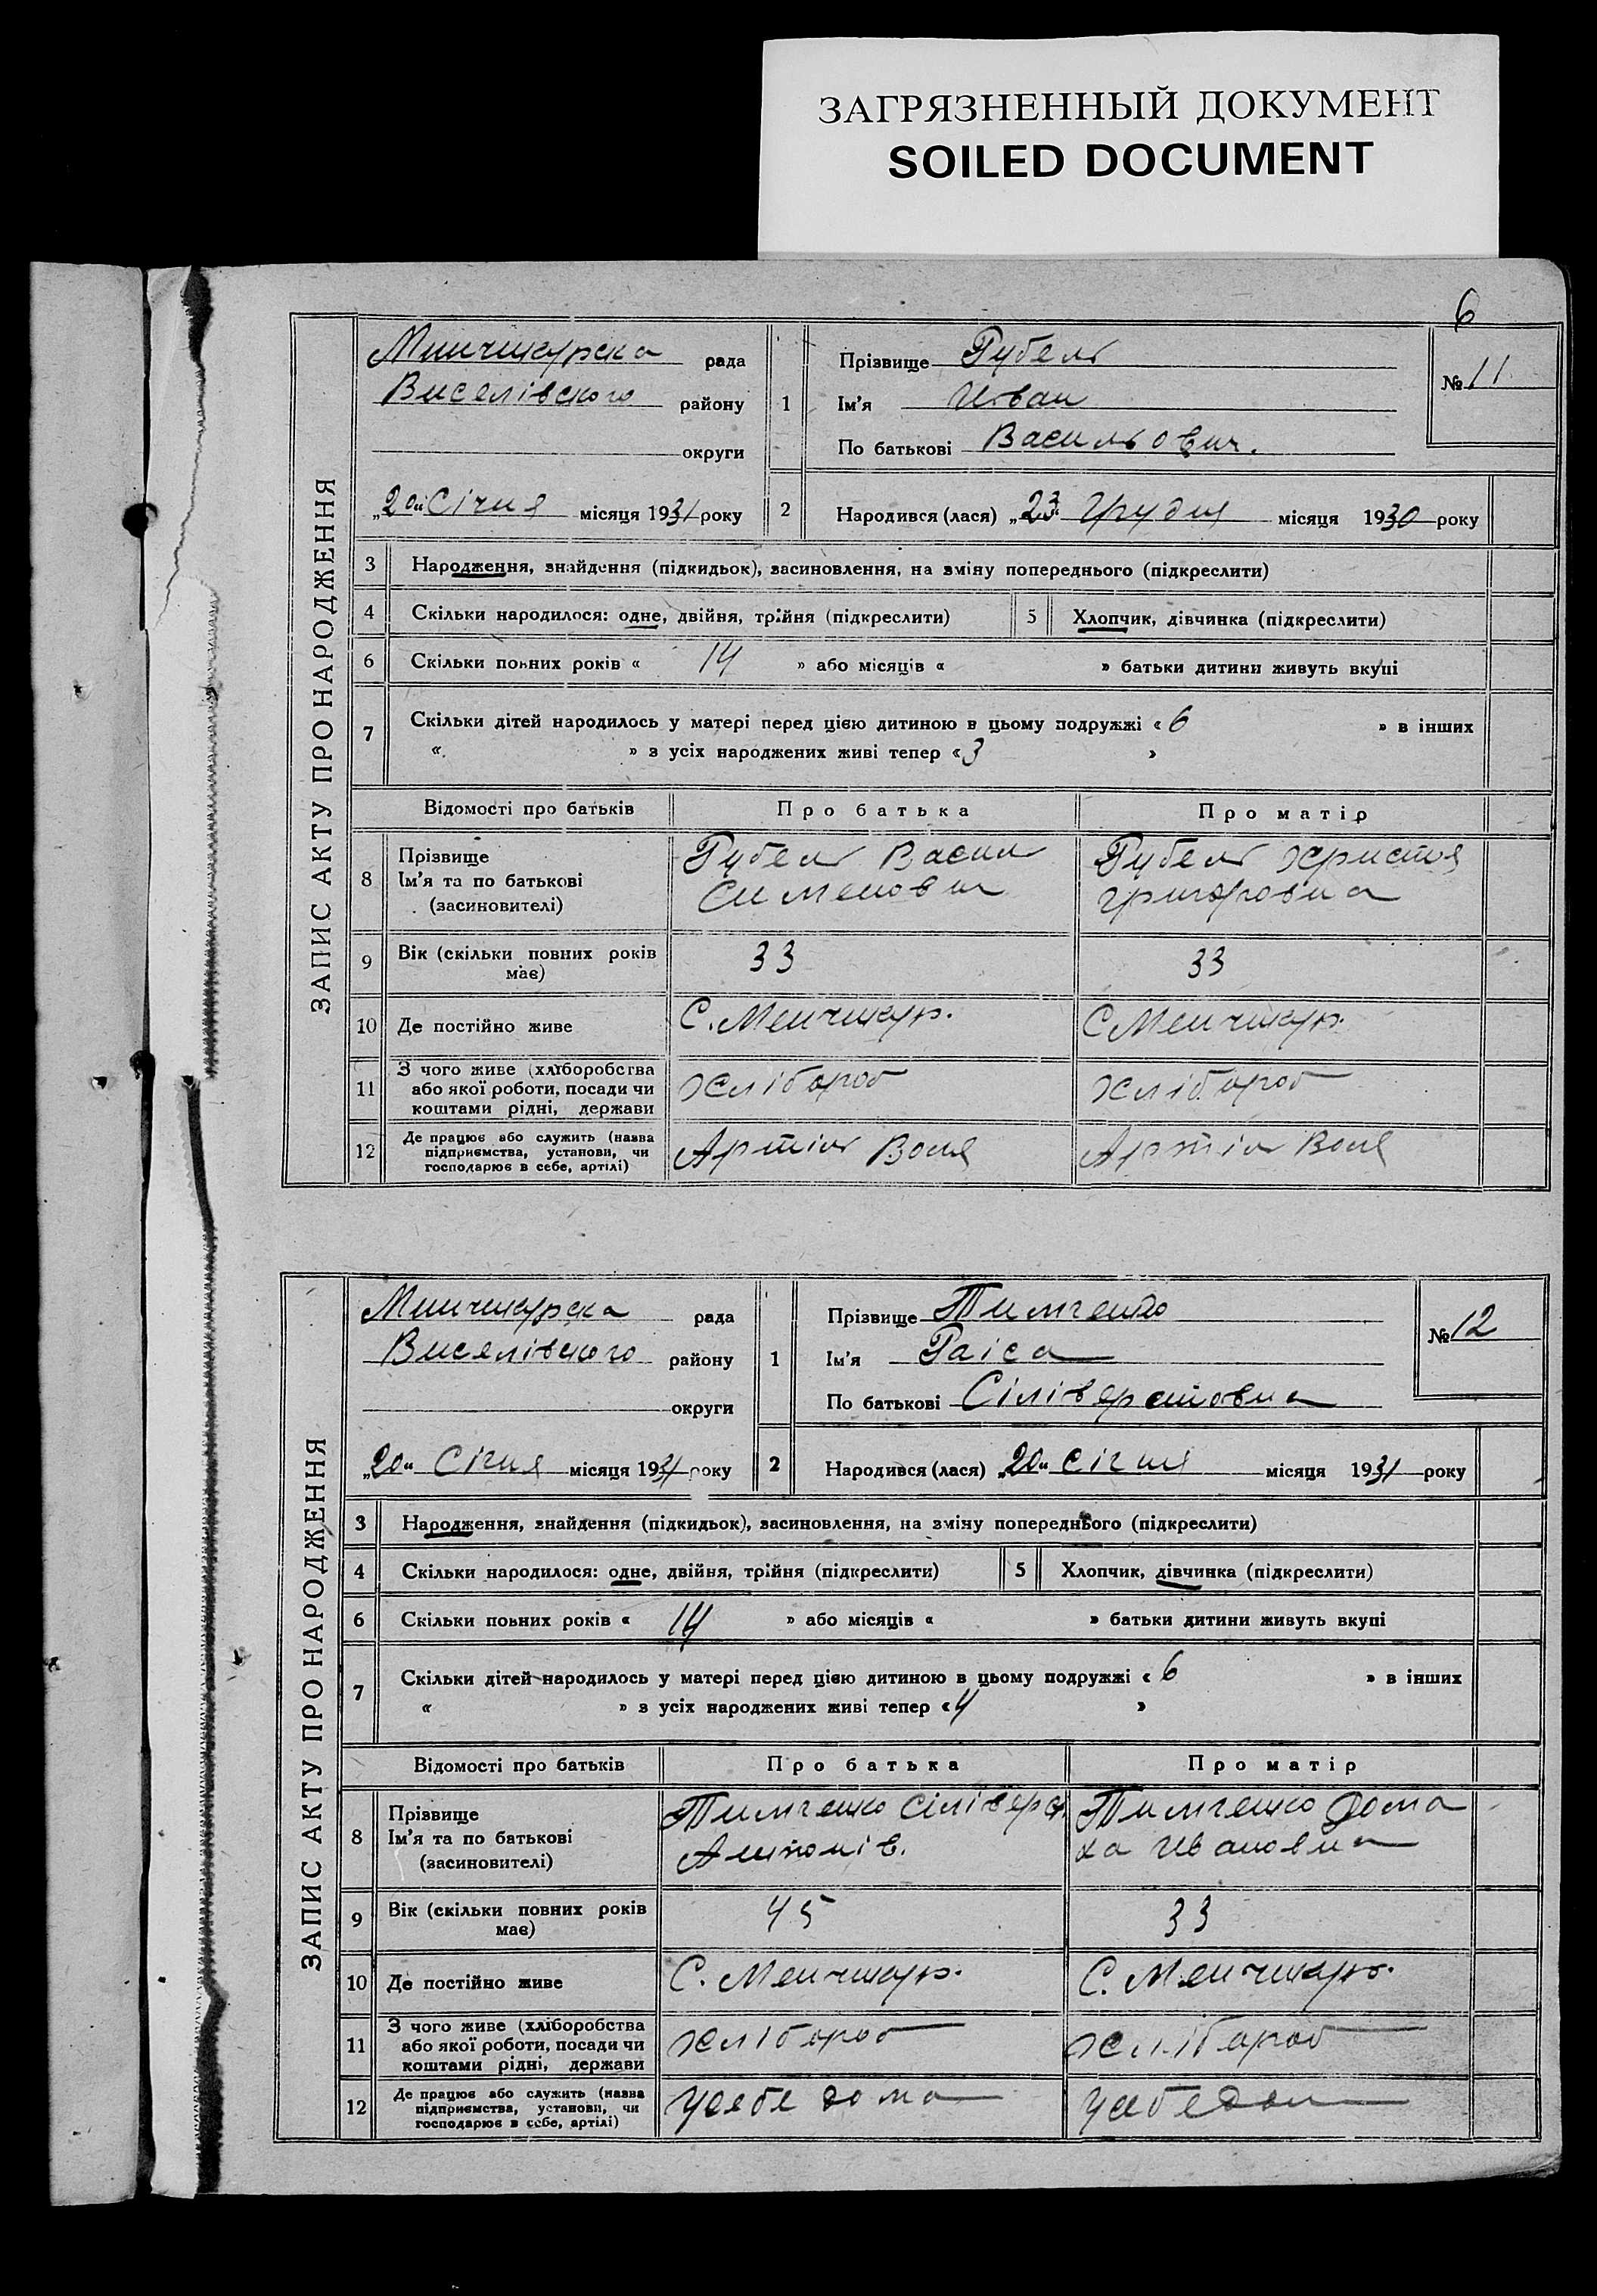 ЗАГРЯЗНЕННЫЙ ДОКУМЕНТ
SOILED DOCUMENT
6
ЗАПИС АКТУ ПРО НАРОДЖЕННЯ
Минчикурска рада
Виселівского району
округи
„20“ Січня місяця 1931 року
1
Прізвище Рубель
Ім’я Иван
По батькові Васильович.
№ 11
2 Народився (лася) „23“ Грудня місяця 1930 року
3 Народження, знайдення (підкидьок), засиновлення, на зміну попереднього (підкреслити)
4 Скільки народилося: одне, двійня, трійня (підкреслити) 5 Хлопчик, дівчинка (підкреслити)
6 Скільки повних років « 14 » або місяців « » батьки дитини живуть вкупі
7 Скільки дітей народилось у матері перед цією дитиною в цьому подружжі « 6 » в інших
« » з усіх народжених живі тепер « 3 »
Відомості про батьків Про батька Про матір
8 Прізвище
Ім’я та по батькові
(засиновителі)
Рубель Васил
Сименович
Рубель Христя
Григоровна
9 Вік (скільки повних років
має)
33 33
10 Де постійно живе С. Менчикур. С Менчикур.
11 З чого живе (хліборобства
або якої роботи, посади чи
коштами рідні, держави
Хлібороб Хлібороб
12 Де працює або служить (назва
підприємства, установи, чи
господарює в себе, артілі)
Артіль Воля Артіль Воля
ЗАПИС АКТУ ПРО НАРОДЖЕННЯ
Минчикурска рада
Виселівского району
округи
„20“ Січня місяця 1931 року
1
Прізвище Тимченко
Ім’я Раіса
По батькові Сіліверстовна
№ 12
2 Народився (лася) „20“ Січня місяця 1931 року
3 Народження, знайдення (підкидьок), засиновлення, на зміну попереднього (підкреслити)
4 Скільки народилося: одне, двійня, трійня (підкреслити) 5 Хлопчик, дівчинка (підкреслити)
6 Скільки повних років « 14 » або місяців « » батьки дитини живуть вкупі
7 Скільки дітей народилось у матері перед цією дитиною в цьому подружжі « 6 » в інших
« » з усіх народжених живі тепер « 4 »
Відомості про батьків Про батька Про матір
8 Прізвище
Ім’я та по батькові
(засиновителі)
Тимченко Сілівер
Антонів.
Тимченко Дома
ха Ивановна
9 Вік (скільки повних років
має)
45 33
10 Де постійно живе С. Менчикур. С. Менчикур.
11 З чого живе (хліборобства
або якої роботи, посади чи
коштами рідні, держави
Хлібороб Хлібороб
12 Де працює або служить (назва
підприємства, установи, чи
господарює в себе, артілі)
Усебе дома Усебе дома